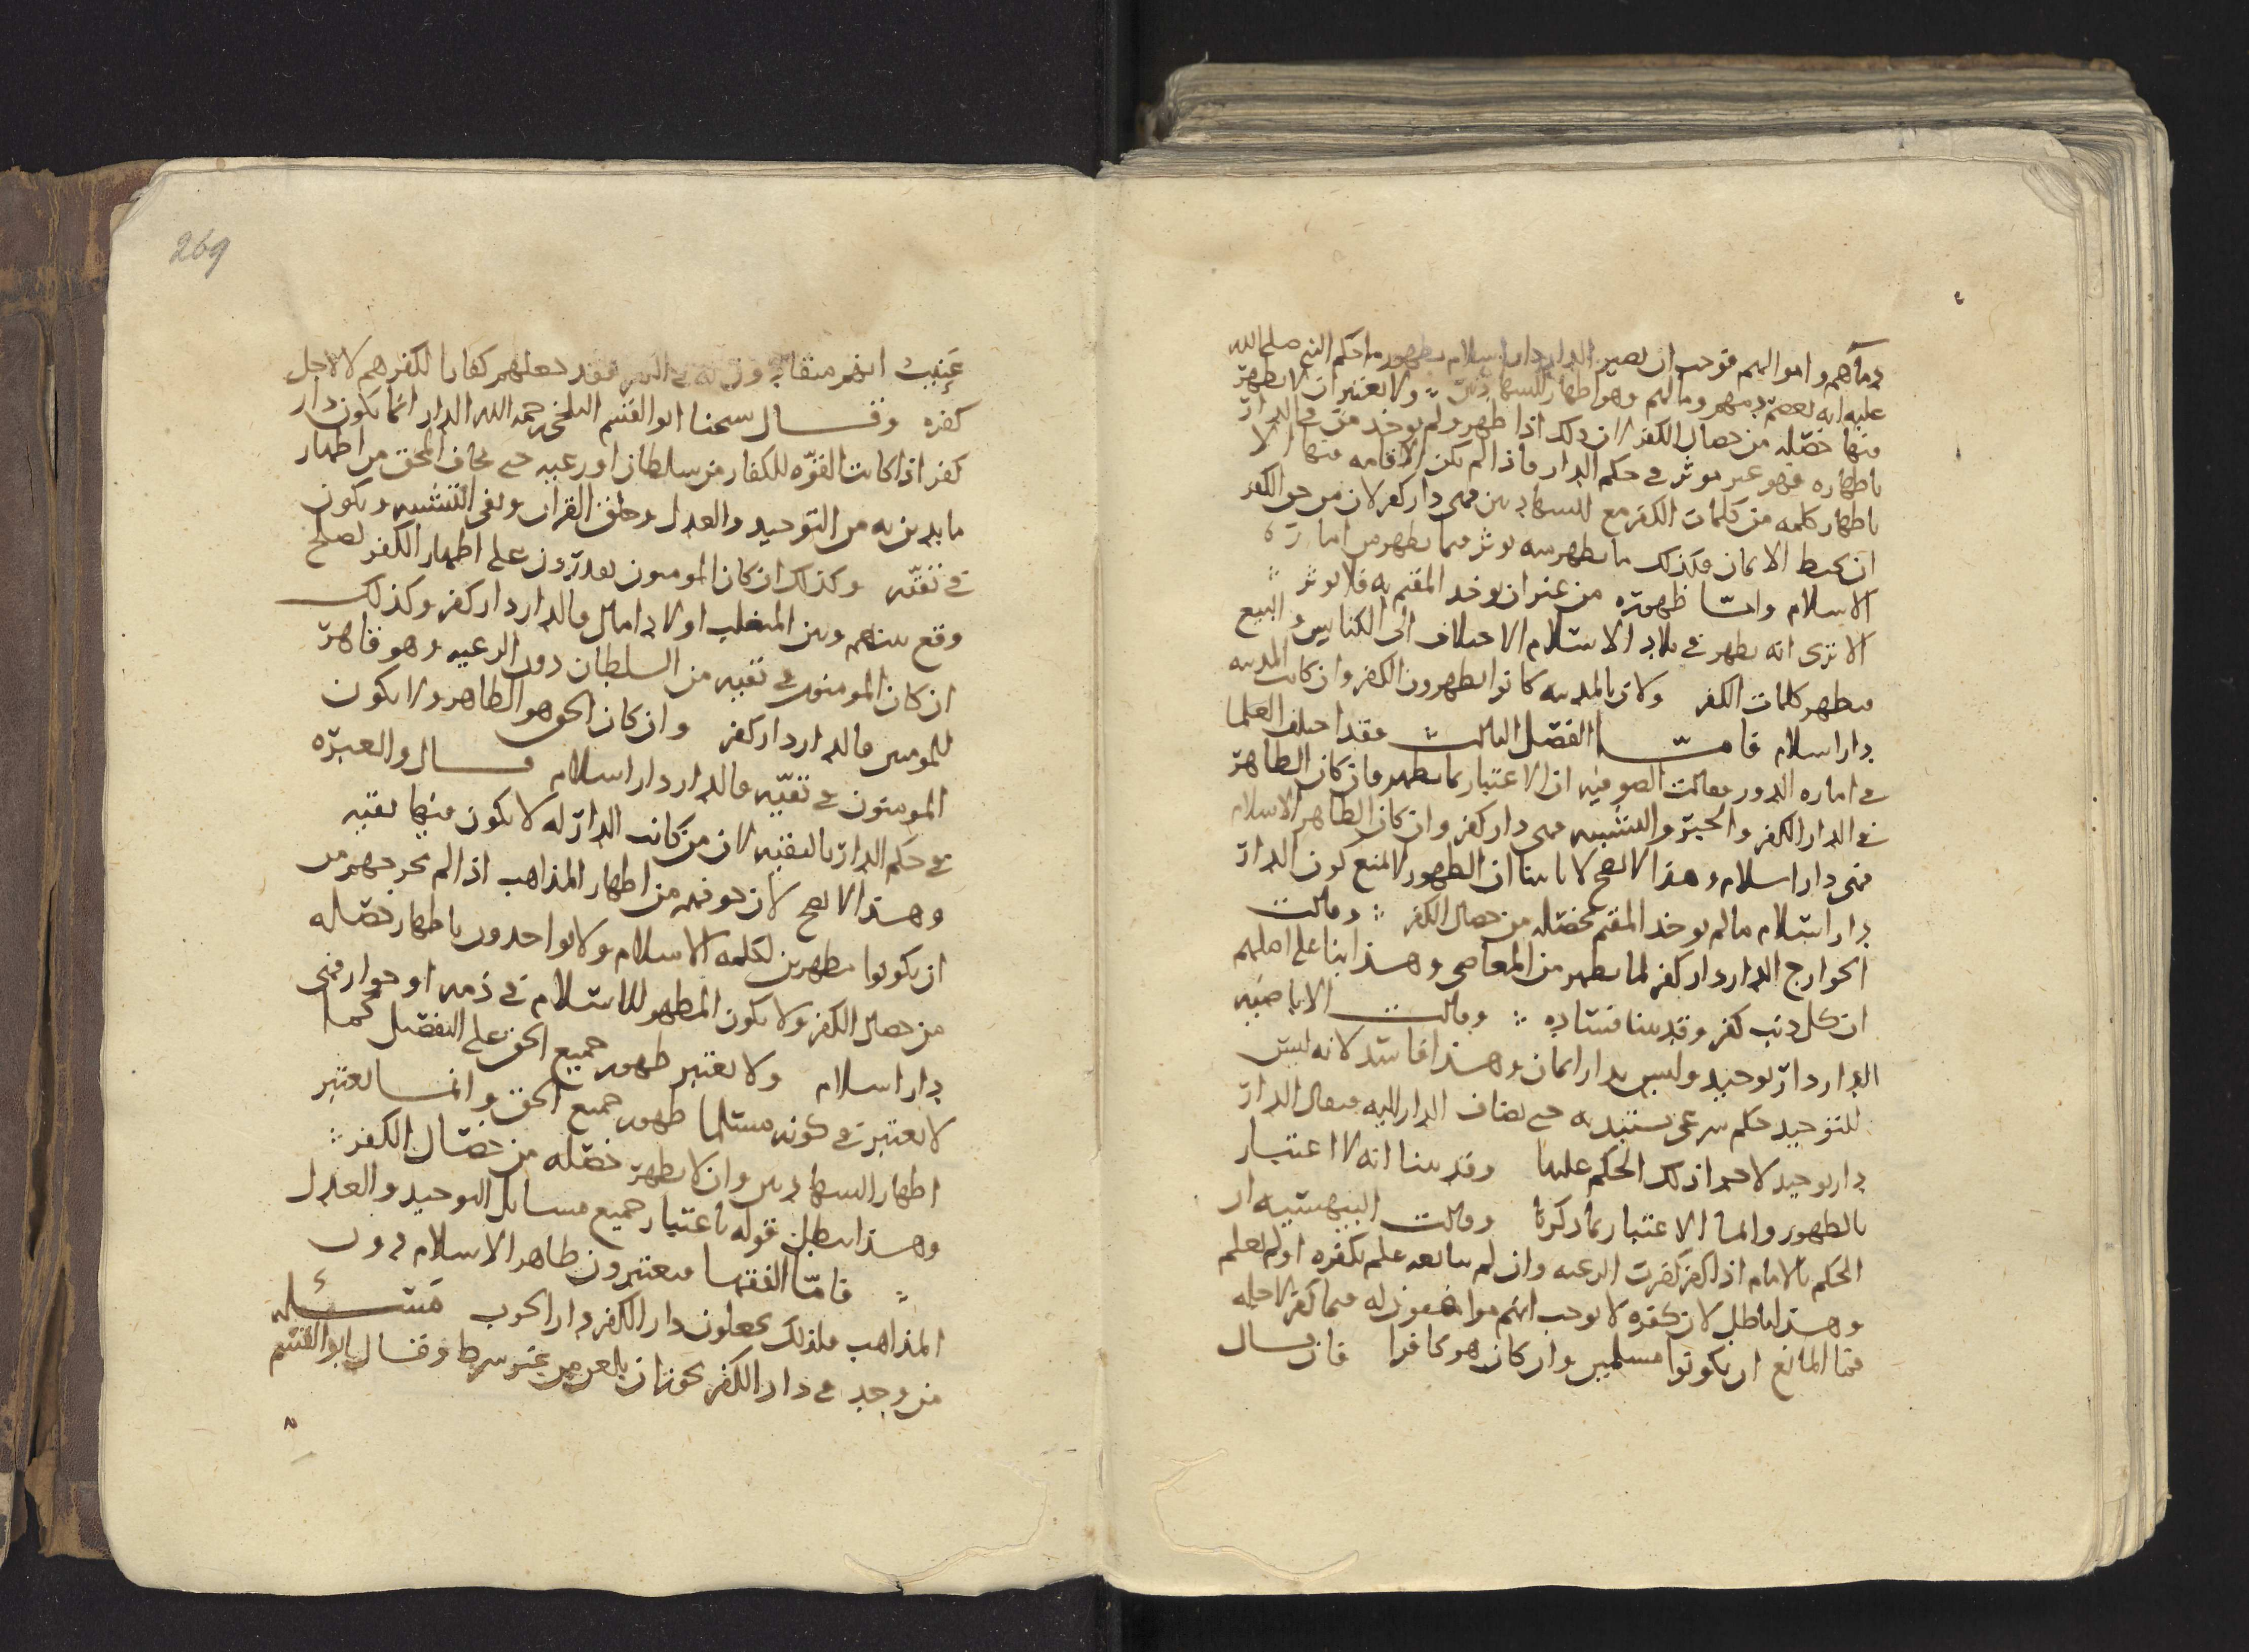 دماهم واموالهم فوجب ان تصير الدار دار اسلام بظهور ما حكم النبي صلى الله
عليه انه يعصم دمهم ومالهم وهو اظهار الشهادتين ولا يعتبر ان لا يظهر
فيها خصله من خصال الكفر لان ذلك اذا ظهر ولم يوخذ من في الدار
باظهاره فهو غير موثر في حكم الدار فاذا لم تكن الاقامه فيها الا
باظهار كلمه من كلمات الكفر مع الشهادتين فهي دار كفر لان من حق الكفر
ان يحبط الايمان فكذلك ما يظهر منه يوثر فيما يظهر من اماره
الاسلام وامّا ظهوره من غير ان يوخذ المقيم به فلا يوثر
الا ترى انه يظهر في بلاد الاسلام الاختلاف الى الكنايس والبيع
فيظهر كلمات الكفر ولان بالمدينه كانوا يظهرون الكفر وان كانت المدينه
دار اسلام فامّا الفصل الثالث فقد اختلف العلما
في اماره الدور فقالت الصوفيه ان الاعتبار بما يظهر فان كان الظاهر
في الدار الكفر والجبر والتشبيه فهي دار كفر وان كان الظاهر الاسلام
فهي دار اسلام وهذا لا يصح لانا بينا ان الظهور لا يمنع كون الدار
دار اسلام ما لم يوخذ المقيم بخصله من خصال الكفر وقالت
الخوارج الدار دار كفر لما يظهر من المعاصي وهذا بنا على اصلهم
ان كل ذنب كفر وقد بينا فساده وقالت الاباضيه
الدار دار توحيد وليس بدار ايمان وهذا فاسد لانه ليس
للتوحيد حكم شرعي يستبد به حتى تضاف الدار اليه فيقال الدار
دار توحيد لاجراء ذلك الحكم عليها وقد بينا انه لا اعتبار
بالظهور وانما الاعتبار بما ذكرنا وقالت البيهسيه ان
الحكم بالامام اذا كفر كفرت الرعيه وان لم يتابعه علم بكفره او لم يعلم
وهذا باطل لان كفره لا يوجب انهم موافقون له فيما كفر لاجله
فما المانع ان يكونوا مسلمين وان كان هو كافرا فان قال
269
عنيت انهم فقد جعلهم كفارا لكفرهم لا لاجل
كفره وقال شيخنا ابو القسم البلخي رحمه الله الدار انما تكون دار
كفر اذا كانت القوّه للكفار من سلطان او رعيه حتى يخاف المحق من اظهار
ما يدين به من التوحيد والعدل وخلق القران ونفي التشبيه ويكون
في تقيّه وكذلك ان كان المومنون يقدرون على اظهار الكفر لصلح
وقع بينهم وبين المتغلب او لاداء مال فالدار دار كفر وكذلك
ان كان المومنون في تقيه من السلطان دون الرعيه وهو قاهر
للمومنين فالدار دار كفر وان كان الحق هو الظاهر ولا يكون
المومنون في تقيّه فالدار دار اسلام قال والعبره
في حكم الدار بالتقيه لان من كانت الدار له لا يكون فيها تقيه
وهذا لا يصح لان خوفهم من اظهار المذاهب اذا لم يخرجهم من
ان يكونوا مظهرين لكلمه الاسلام ولا يواخذون باظهار خصله
من خصال الكفر ولا يكون المظهر للاسلام في ذمه او جوار فهي
دار اسلام ولا يعتبر ظهور جميع الحق على التفصيل كما
لا يعتبر في كونه مسلما ظهور جميع الحق وانما يعتبر
اظهار الشهادتين وان لا يظهر خصله من خصال الكفر
وهذا يبطل قوله باعتبار جميع مسايل التوحيد والعدل
فامّا الفقها فيعتبرون ظاهر الاسلام دون
المذاهب فلذلك يجعلون دار الكفر دار الحرب مسئله
من وجد في دار الكفر يجوز ان يلعن من غير شرط وقال ابو القسم